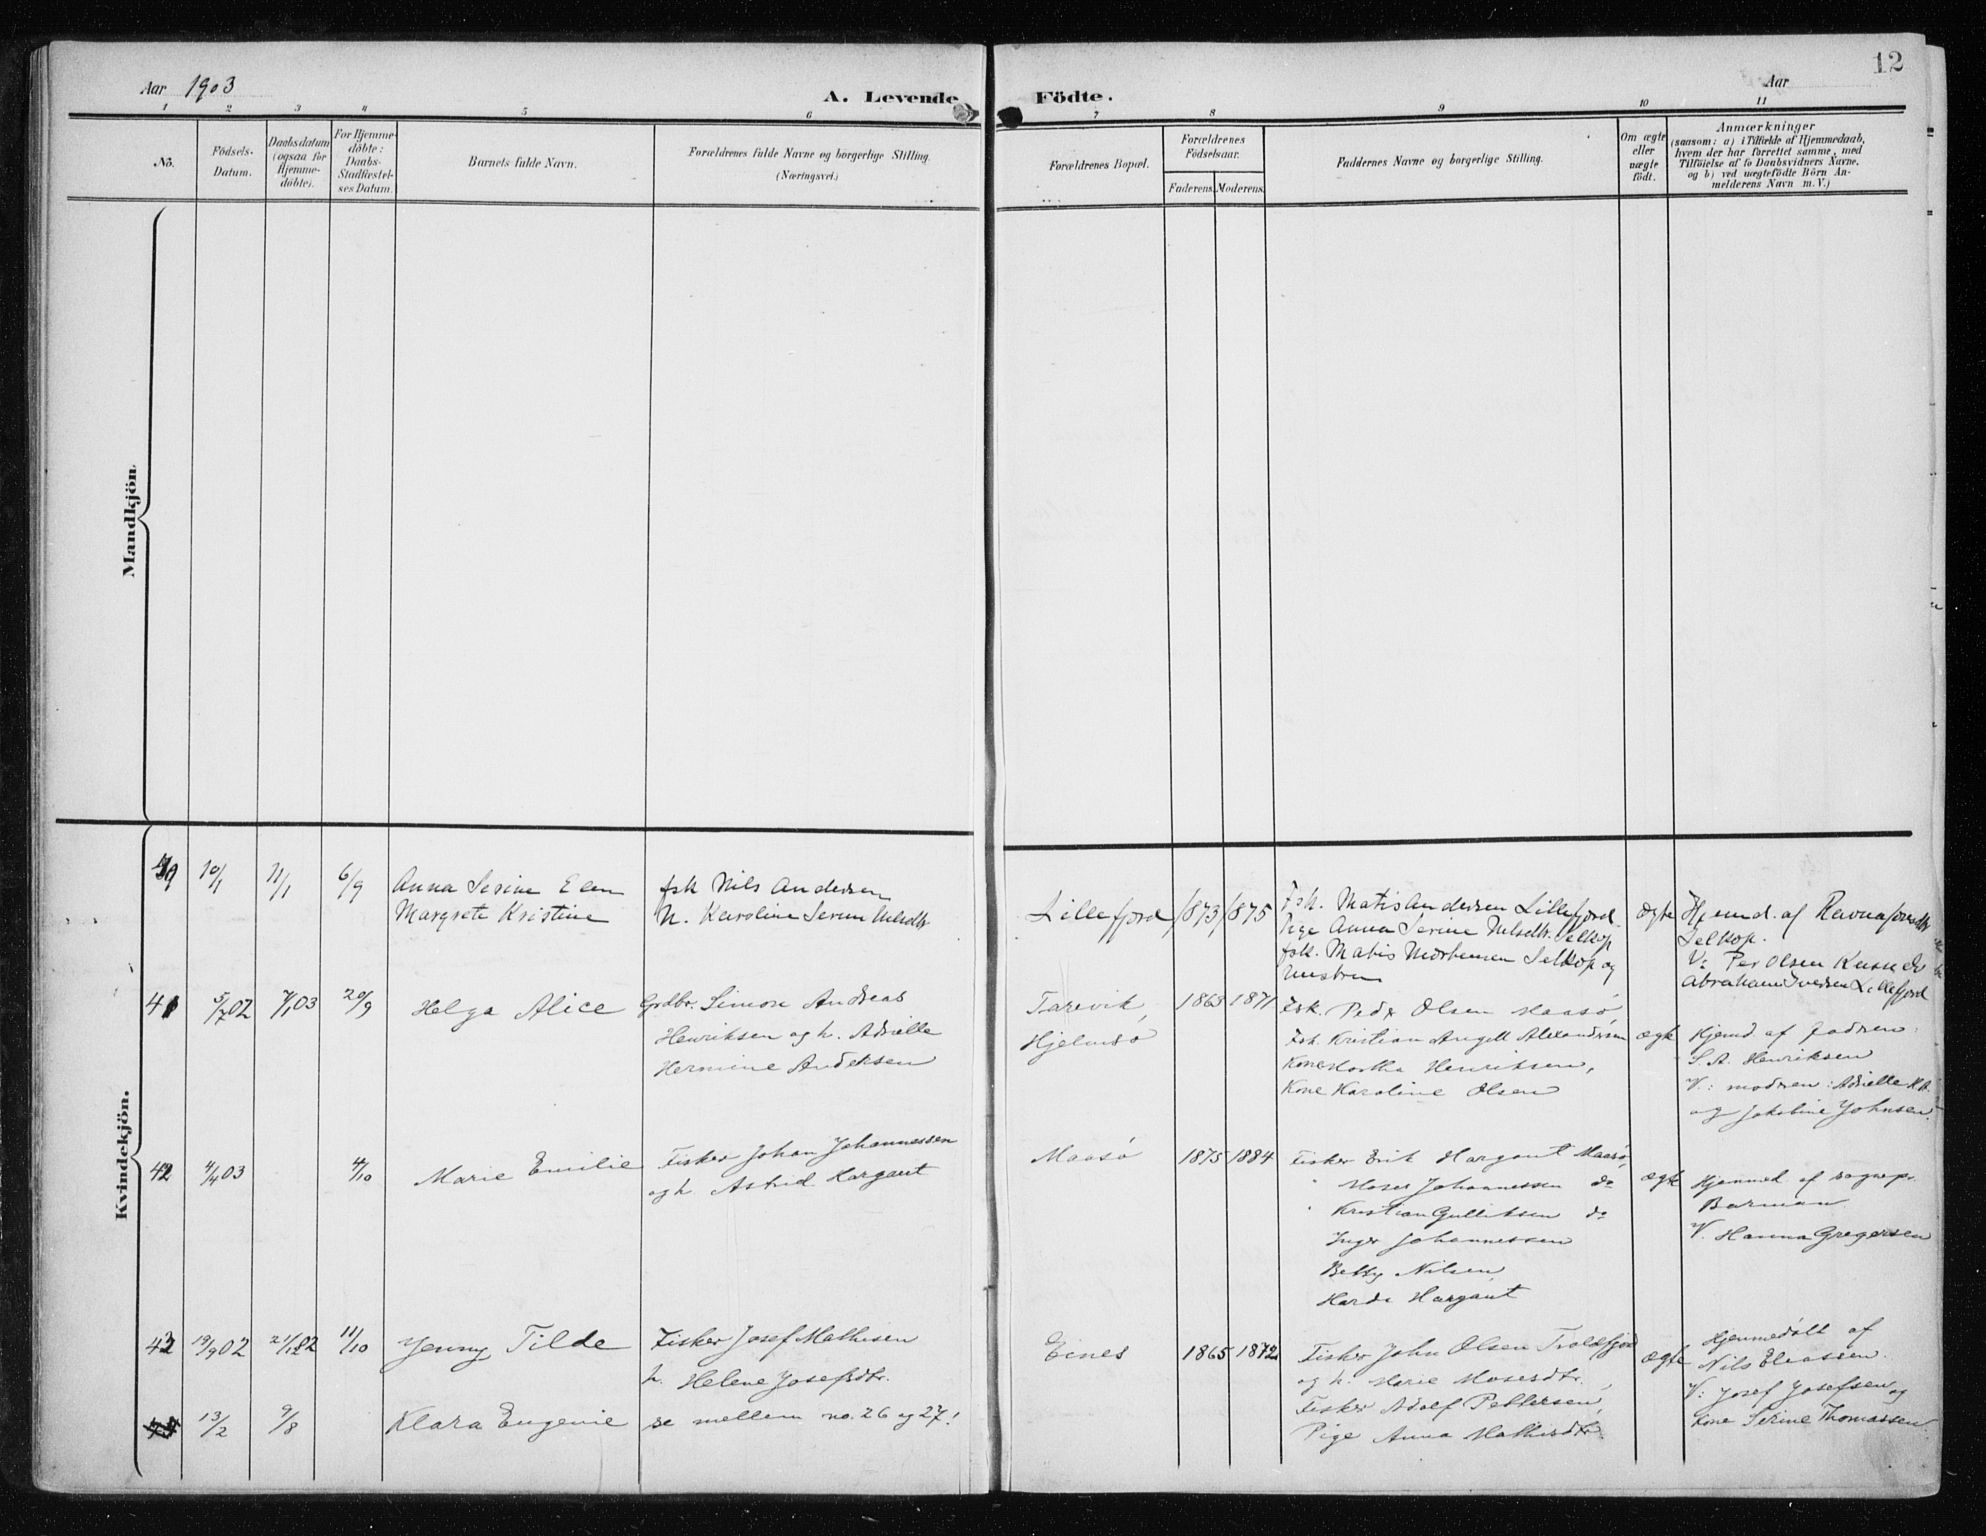 12
Aar 1903
A. Levende
Födte.
Aar
1 2 3 4 5 6 7 8 9 10 11
No.
Födsels-
Datum.
Daabsdatum
(ogsaa for
Hjemme-
döbte).
For Hjemme-
döbte:
Daabs-
Stadfæstel-
ses Datum.
Barnets fulde Navn.
Forældrenes fulde Navne og borgerlige Stilling.
(Næringsvei.)
Forældrenes Bopæl.
Forældrenes
Födselsaar.
Faderens.
Moderens.
Faddernes Navne og borgerlige Stilling.
Om ægte
eller
uægte
födt.
Anmærkninger
(saasom: a) i Tilfælde af Hjemmedaab,
hvem der har forrettet samme, med
Tilföielse af to Daabsvidners Navne,
og b) ved uægtefödte Börn An-
melderens Navn m. V.)
Mandkjön.
Kvindekjön.
10/1
11/1
6/9
Anna Serine Elen
Margrete Kristine
fsk Nils Andersen
Karoline Nilsdtr
Lillefjord
1873
1875
Fsk. Matis Andersen Lillefjord
Pige Anna Serine Nilsdtr. Selkop
fsk. Matis Mortensen Selkop og
hustru
ægte
Hjemd. af
Selkop.
V: Per Olsen
Abraham Iversen Lillefjord
41
5/7 02
7/1 03
20/9
Helga Alice
Grdbr. Simon Andreas
Henriksen og h. Adrielle
Hermine Andersen
Tarevik,
Hjelmsö
1863
1871
Fsk. Peder Olsen Maasö,
Fsk. Kristian Angell Alexandersen
Kone Henriksen,
Kone Karoline Olsen
ægte
Hjemd af faderen
S. A. Henriksen
V.: moderen: Adrielle H. A.
og Jakobine Johnsen.
42
4/4 03
4/10
Marie Emilie
Fisker Johan Johannessen
og h Astrid Hargaut
Maasö
1875
1884
Fisker Erik Hargaut Maasö,
" Moses Johannessen do
" Kristian Gulliksen do
Inger Johannessen
Betty Nilsen
Hargaut
ægte
Hjemmed. af sognepr.
Barman
V. Hanna Gregersen
43
19/9 02
21/12 02
11/10
Jenny Tilde
Fisker Josef Mathisen
h. Helene Josefsdtr.
Eines
1865
1872
Fisker John Olsen Troldfjord
og h. Marie Mosesdtr.
Fisker Adolf Pettersen,
Pige Anna Mathisdtr.
ægte
Hjemmedöbt af
Nils Eliassen.
V: Josef Josefsen og
Kone Serine Thomassen
44
13/2
9/8
Klara Eugenie
se mellem no. 26 og 27!